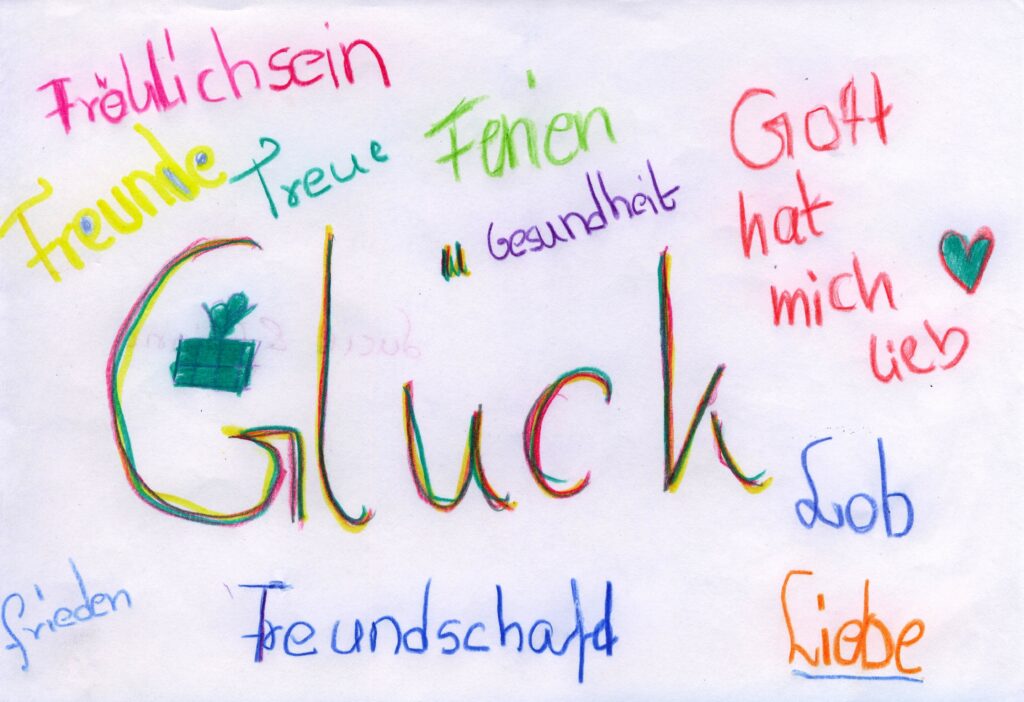 Fröhlichsein
Freunde
Treue
Ferien
Gesundheit
Gott
hat
mich
lieb
Glück
Lob
frieden
Freundschaft
Liebe